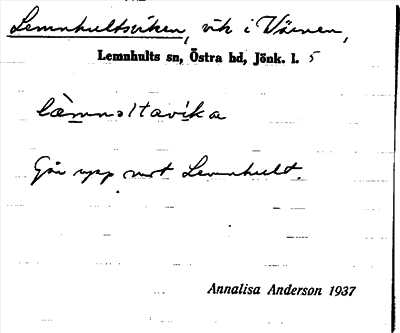 Lemnhultsviken, vik i Värnen,
Lemnhults sn, Östra hd, Jönk. l. 5
læ̀mnəltavìka
Går upp mot Lemnhult.
Annalisa Anderson 1937